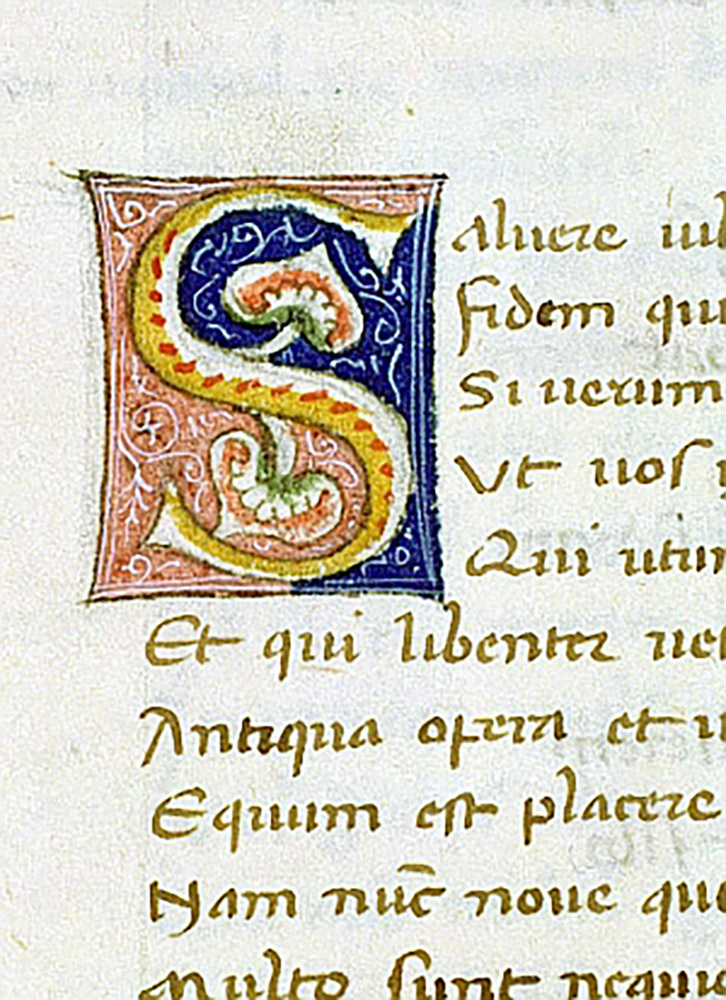 Saluere iub
fidem qui
Si uerum
Vt uos
Qui utun
Et qui libenter uet
Antiqua opera et u
Equum est placere
Nam nūc noue que
Multo sunt nequi